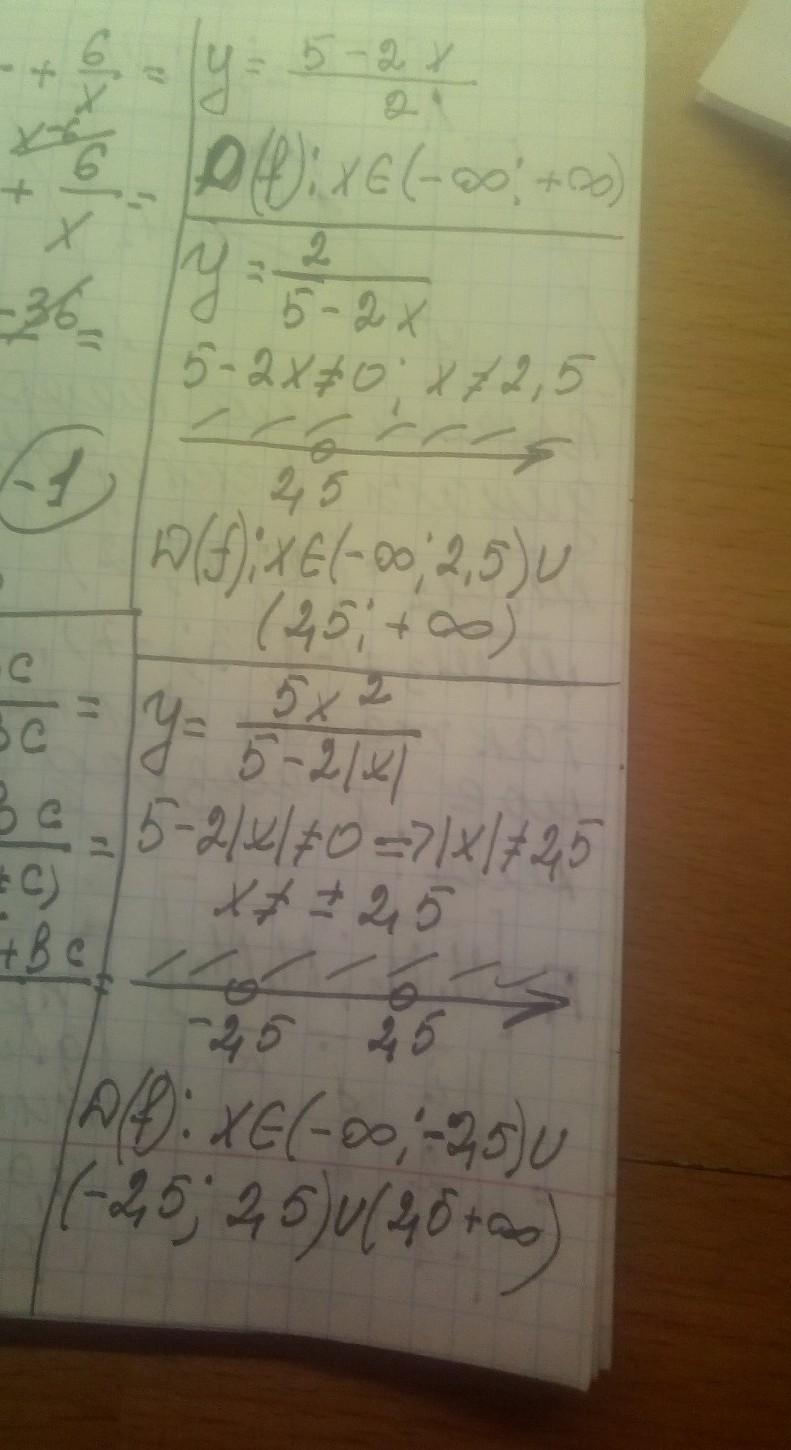 + 6/x =
x-6
+ 6/x =
-36 =
-1
c
Bc =
Bc
+c) =
+Bc =
y = 5-2x/2
D(f): x∈(-∞; +∞)
y = 2/5-2x
5-2x≠0; x≠2,5
2,5
D(f): x∈(-∞; 2,5)∪
(2,5; +∞)
y = 5x²/5-2|x|
5-2|x|≠0 => |x|≠2,5
x≠ ±2,5
-2,5 2,5
D(f): x∈(-∞; -2,5)∪
(-2,5; 2,5)∪(2,5 +∞)